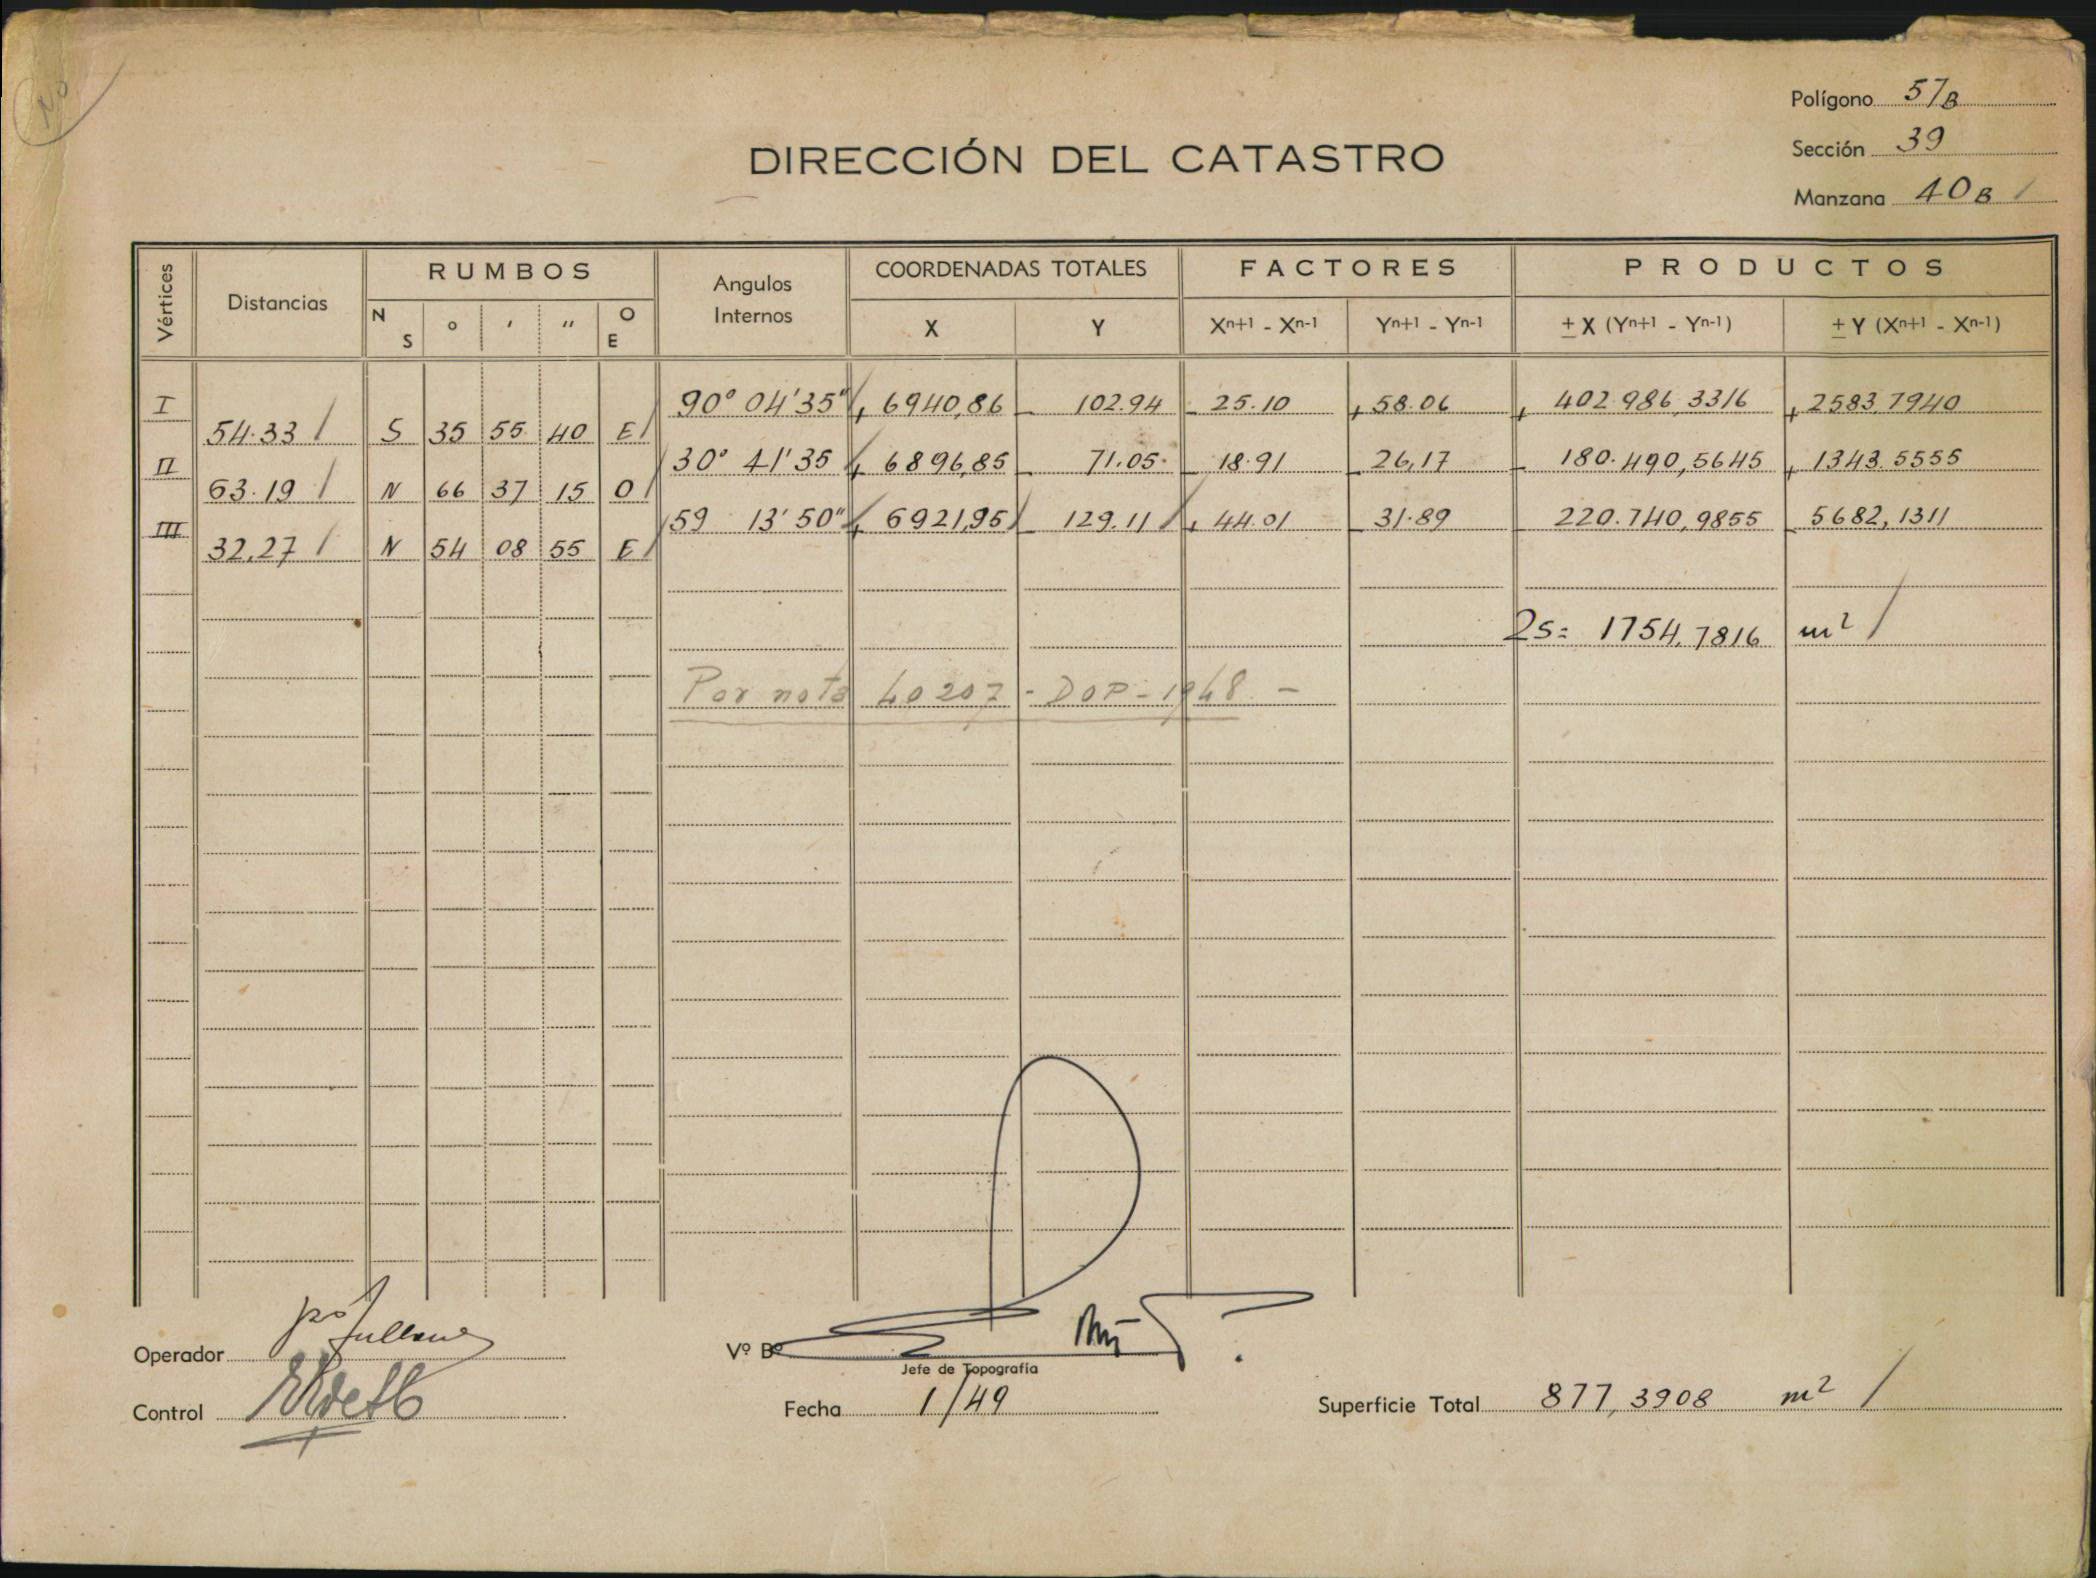 No
Polígono 57B
Sección 39
Manzana 40B /
DIRECCIÓN DEL CATASTRO
Vértices Distancias RUMBOS Angulos Internos COORDENADAS TOTALES FACTORES PRODUCTOS
N S ° ' " O E X Y Xn+1 - Xn-1 Yn+1 - Yn-1 ± X (Yn+1 - Yn-1) ± Y (Xn+1 - Xn-1)
I 90° 04' 35" + 6940,86 - 102.94 - 25.10 + 58.06 + 402.986,3316 + 2583,7940
54.33 / S 35 55 40 E /
II 30° 41' 35 + 6896,85 - 71.05 - 18.91 - 26,17 - 180.490,5645 + 1343.5555
63.19 / N 66 37 15 O /
III 59 13' 50" + 6921,95 / - 129.11 / + 44.01 - 31.89 - 220.740,9855 - 5682,1311
32,27 / N 54 08 55 E /
2S = 1754,7816 m² /
Por nota 40207 - DOP - 1948 -
Operador
Vº Bº
Jefe de Topografía
Control
Fecha 1/49
Superficie Total 877,3908 m² /